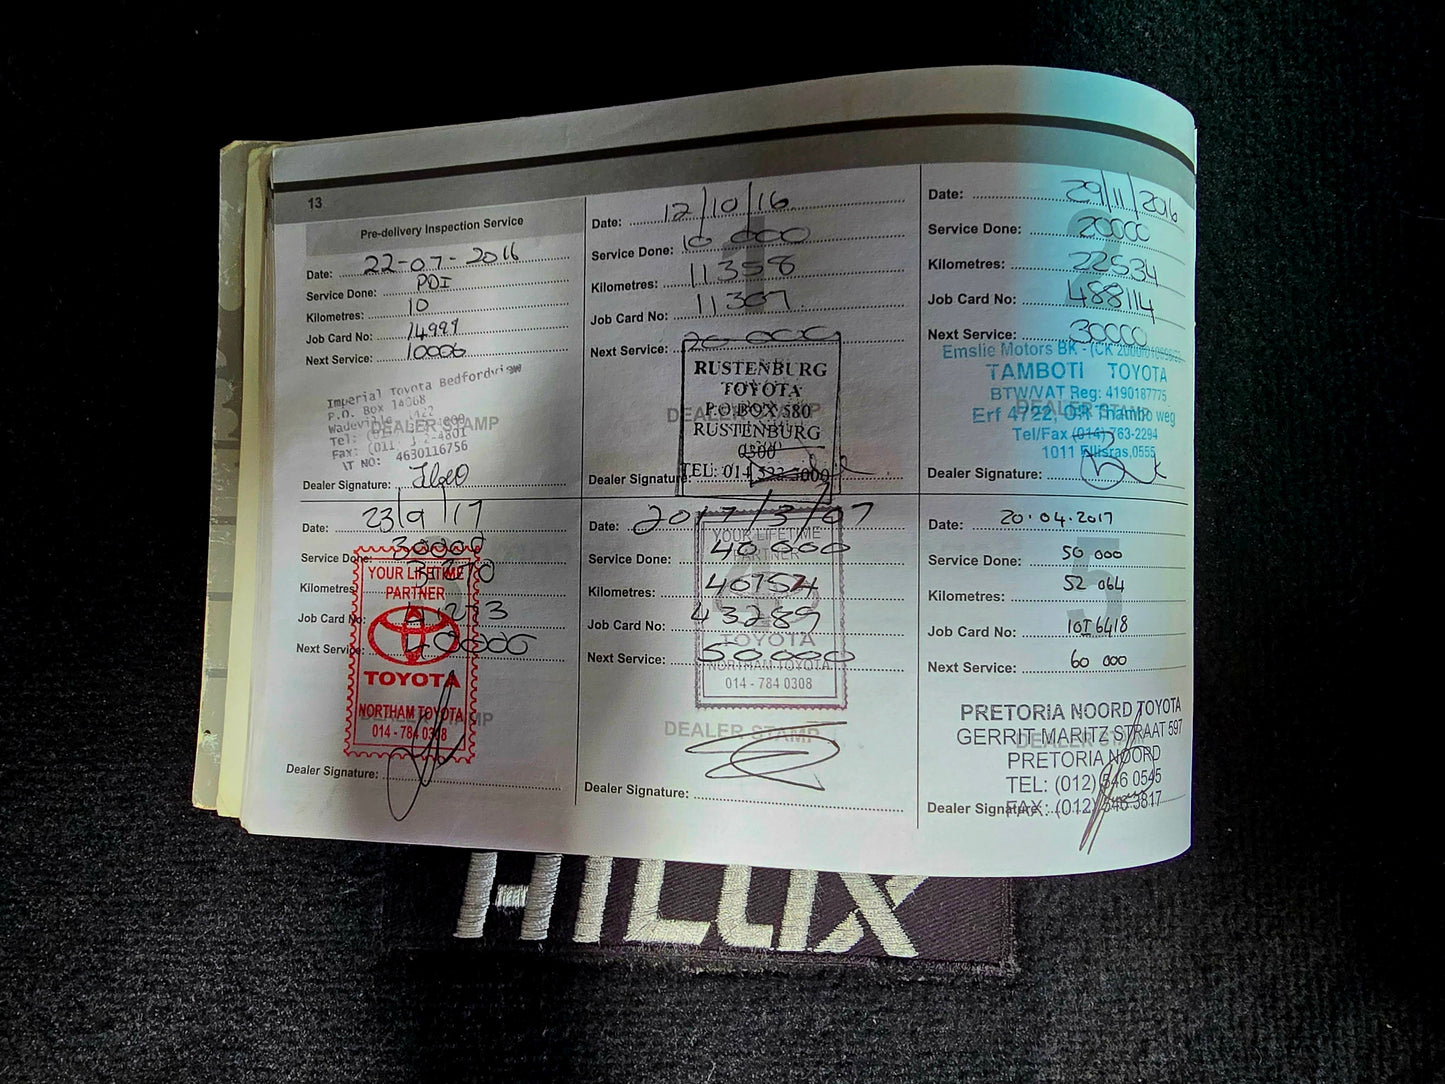 13
Pre-delivery Inspection Service
Date: 22-07-2016
Service Done: PDI
Kilometres: 10
Job Card No: 14997
Next Service: 10000
Imperial Toyota Bedfordview
P.O. Box 14068
Wadeville 1422
DEALER STAMP
Tel:
Fax: (011 2-4801
AT NO: 4630116756
Dealer Signature:
Date: 12/10/16
Service Done: 10 000
Kilometres: 11358
Job Card No: 11307
Next Service: 20 000
1
RUSTENBURG
TOYOTA
P.O BOX 580
DEALER STAMP
RUSTENBURG
0300
TEL: 014
Dealer Signature:
Date: 29/11/2016
Service Done: 20000
Kilometres: 22534
Job Card No: 488114
Next Service: 30000
Emslie Motors BK - (CK
TAMBOTI TOYOTA
BTW/VAT Reg: 4190187775
DEALER STAMP
Erf 4722, OR Thambo weg
Tel/Fax (014) 763-2294
1011 Ellisras,0555
Dealer Signature:
Date: 23/9/17
Service Done: 30000
Kilometres:
Job Card No:
Next Service: 40000
YOUR LIFETIME
PARTNER
TOYOTA
NORTHAM TOYOTA
DEALER STAMP
014 - 784 0308
Dealer Signature:
Date: 2017/3/07
Service Done: 40 000
Kilometres: 40754
Job Card No: 43289
Next Service: 50000
4
YOUR LIFETIME
PARTNER
TOYOTA
NORTHAM TOYOTA
014 - 784 0308
DEALER STAMP
Dealer Signature:
Date: 20.04.2017
Service Done: 50 000
Kilometres: 52 064
Job Card No: 10I6418
Next Service: 60 000
5
PRETORIA NOORD TOYOTA
GERRIT MARITZ STRAAT 597
DEALER STAMP
PRETORIA NOORD
TEL: (012) 546 0545
FAX: (012) 546 3817
Dealer Signature:
HILUX